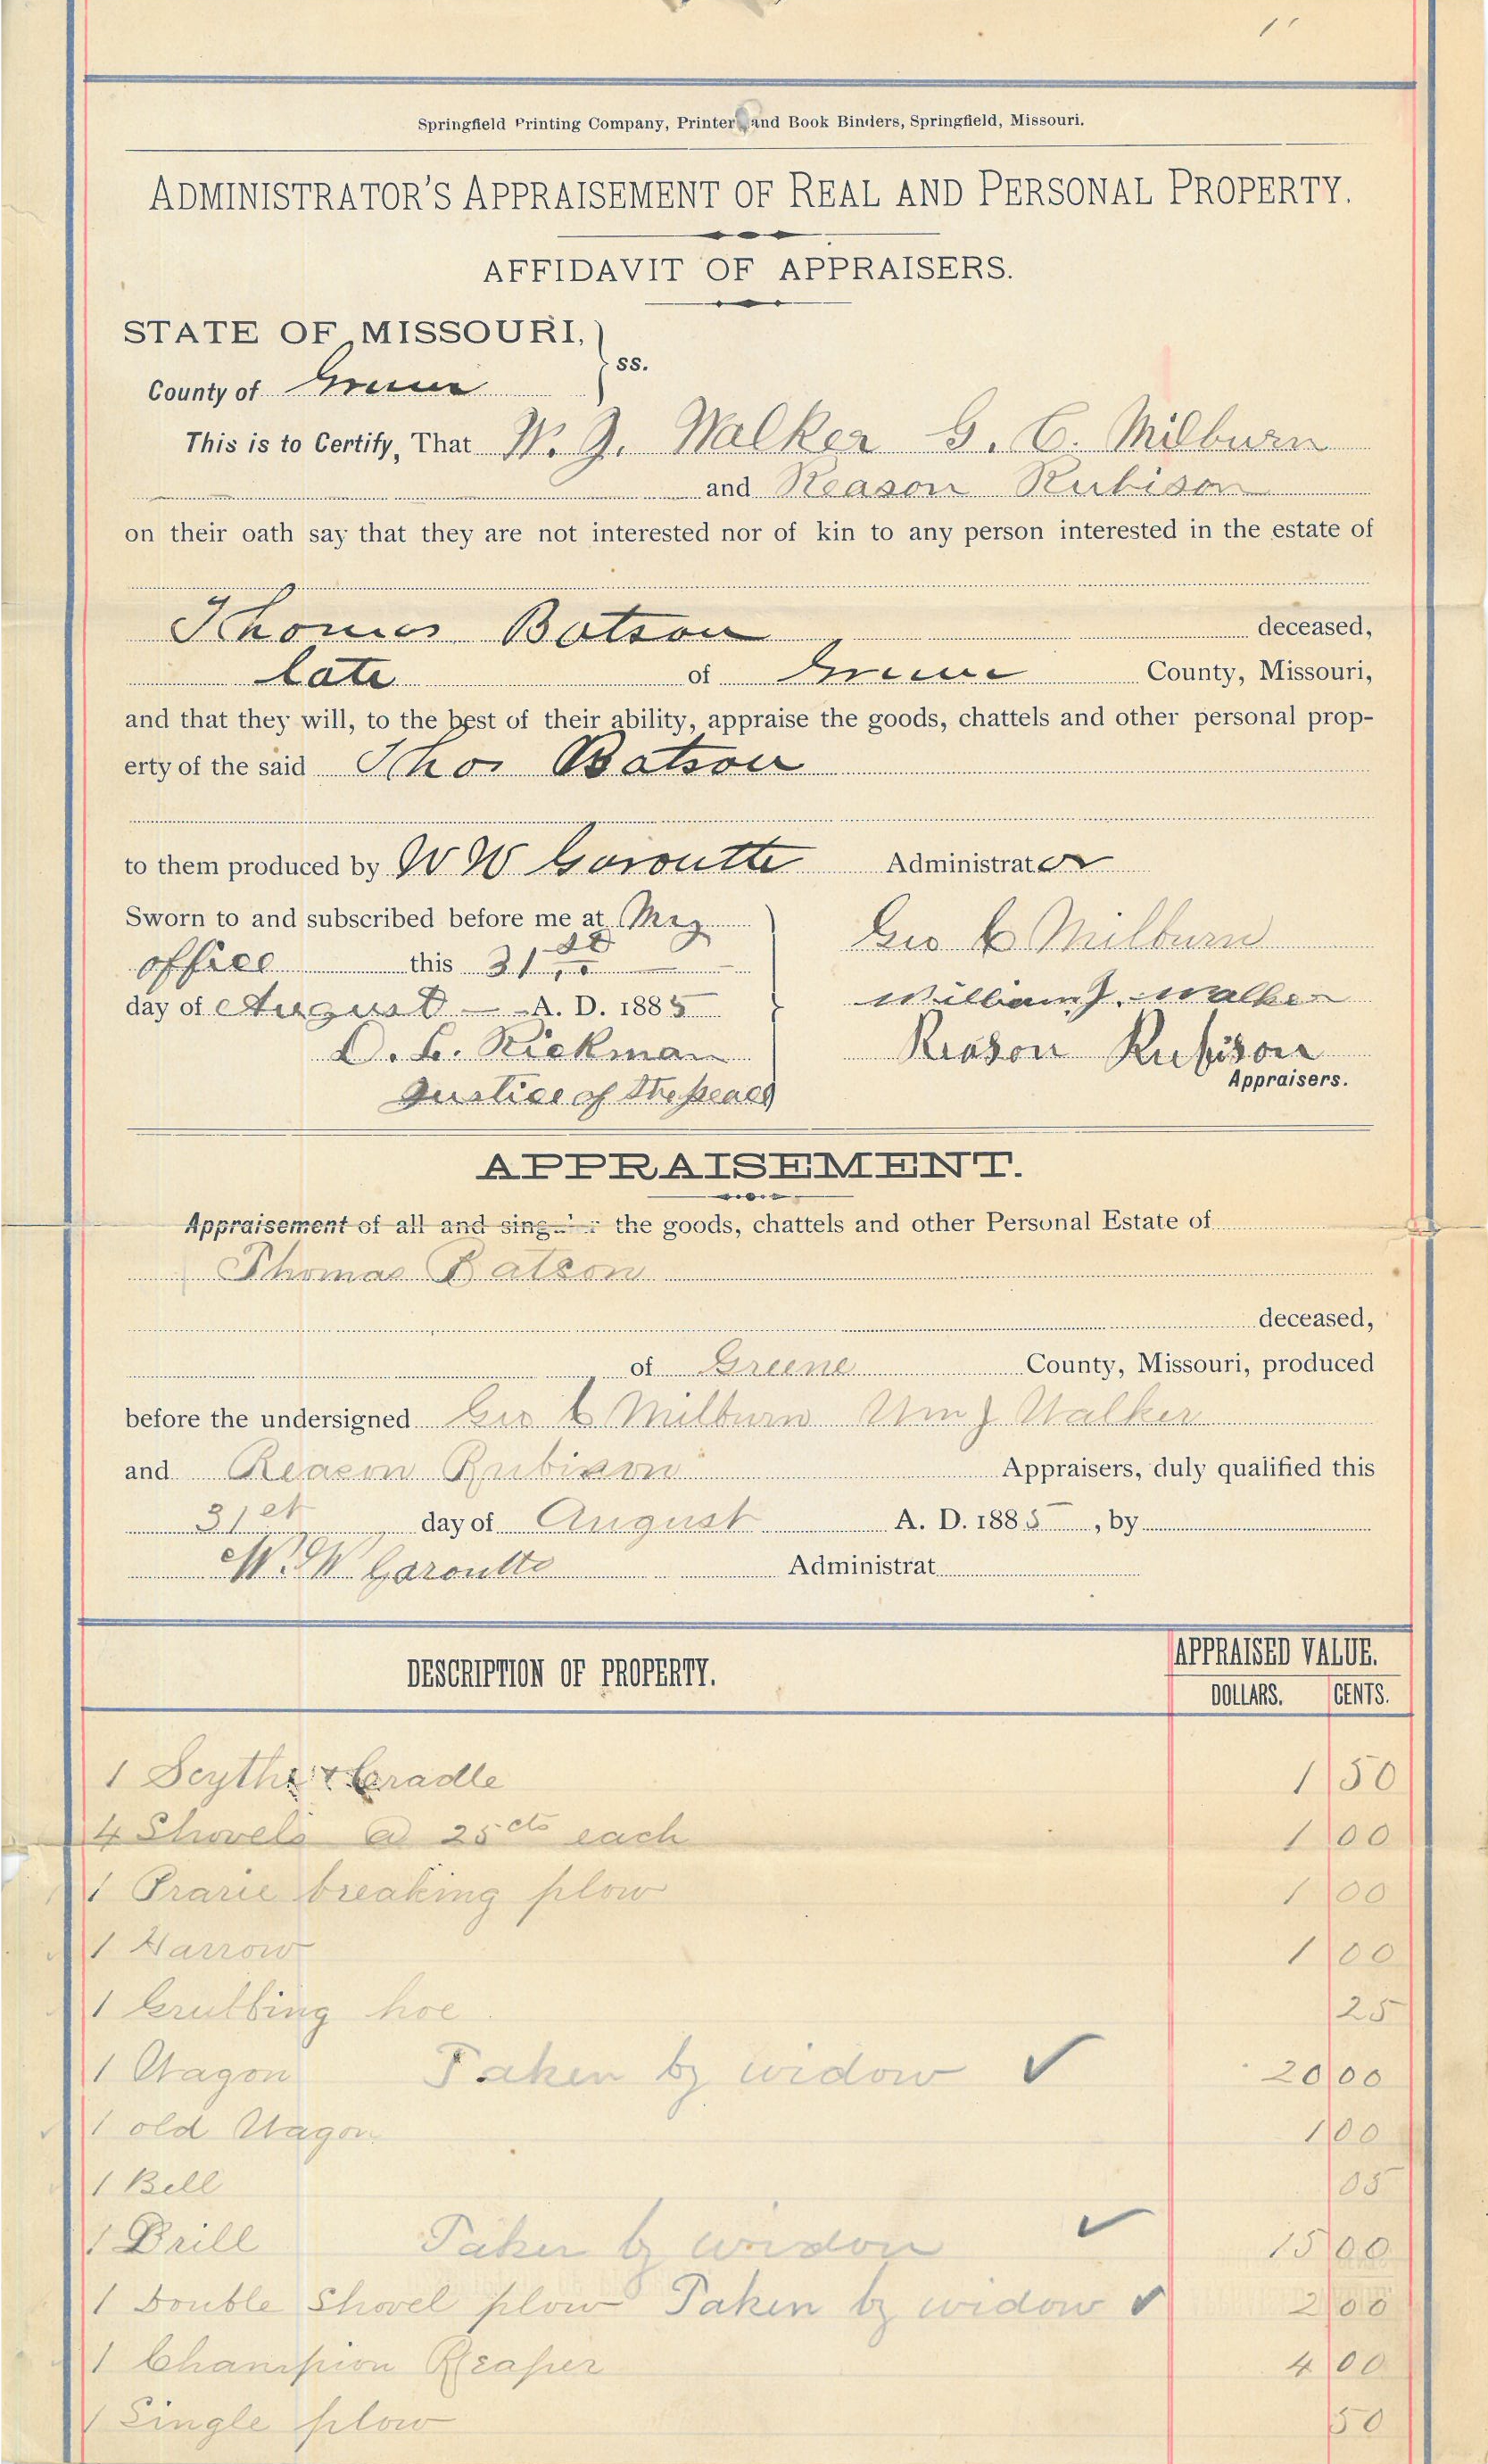 Springfield Printing Company, Printer and Book Binders, Springfield, Missouri.
ADMINISTRATOR'S APPRAISEMENT OF REAL AND PERSONAL PROPERTY.
AFFIDAVIT OF APPRAISERS.
STATE OF MISSOURI,
ss.
County of Greene
This is to Certify, That W. J. Walker G. C. Milburn
and Reason Rubison
on their oath say that they are not interested nor of kin to any person interested in the estate of
Thomas Batson deceased,
late of Greene County, Missouri,
and that they will, to the best of their ability, appraise the goods, chattels and other personal prop-
erty of the said Thos Batson
to them produced by W W Garoutte Administrator
Sworn to and subscribed before me at My
office this 31st
day of August A. D. 1885
D. L. Rickman
Justice of the peace
Geo C Milburn
William J. Walker
Reason Rubison
Appraisers.
APPRAISEMENT.
Appraisement of all and singular the goods, chattels and other Personal Estate of
Thomas Batson
deceased,
of Greene County, Missouri, produced
before the undersigned Geo C Milburn Wm J Walker
and Reason Rubison Appraisers, duly qualified this
31st day of August A. D. 1885, by
W. W Garoutte Administrat
DESCRIPTION OF PROPERTY. APPRAISED VALUE.
DOLLARS. CENTS.
1 Scythe & Cradle 1 50
4 Shovels @ 25cts each 1 00
1 Prarie breaking plow 1 00
1 Harrow 1 00
1 Grubbing hoe 25
1 Wagon Taken by widow ✓ 20 00
1 old Wagon 1 00
1 Bell 05
1 Drill Taken by widow ✓ 15 00
1 Double Shovel plow Taken by widow ✓ 2 00
1 Champion Reaper 4 00
1 Single plow 50